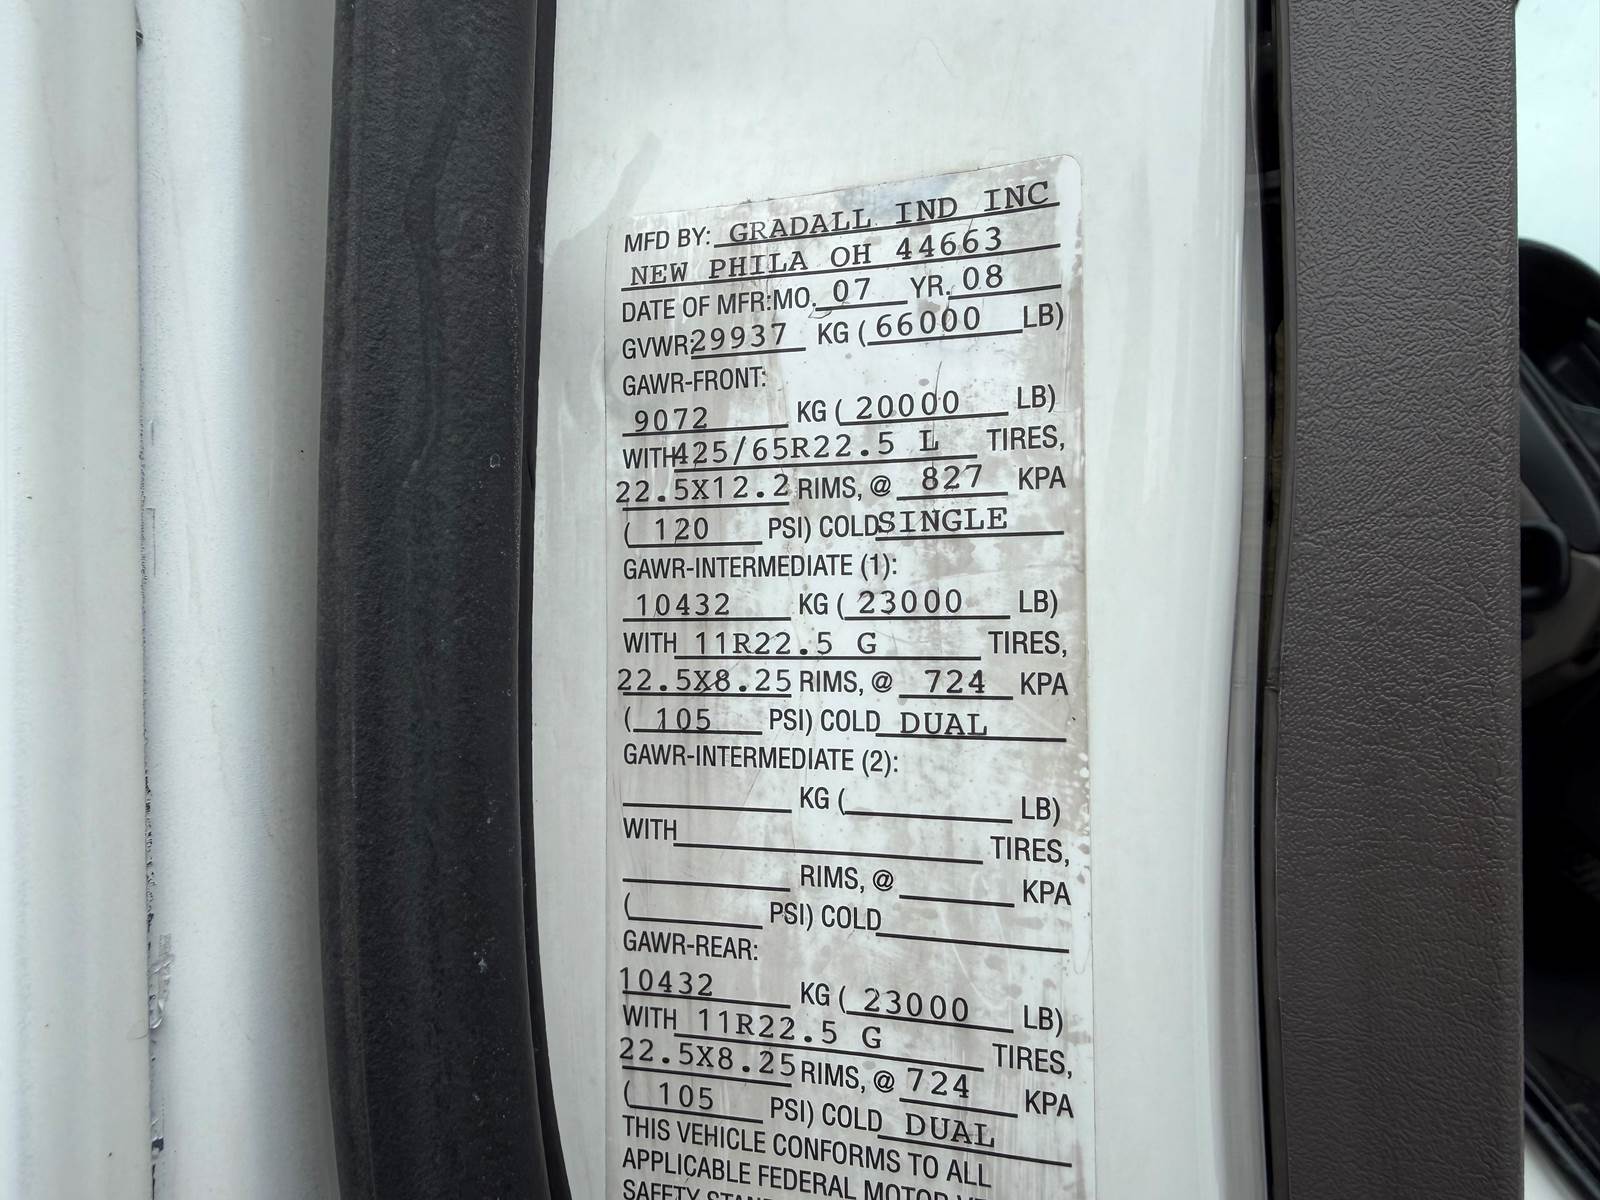 MFD BY: GRADALL IND INC
NEW PHILA OH 44663
DATE OF MFR:MO. 07 YR. 08
GVWR 29937 KG ( 66000 LB)
GAWR-FRONT:
9072 KG ( 20000 LB)
WITH 425/65R22.5 L TIRES,
22.5X12.2 RIMS, @ 827 KPA
( 120 PSI) COLD SINGLE
GAWR-INTERMEDIATE (1):
10432 KG ( 23000 LB)
WITH 11R22.5 G TIRES,
22.5X8.25 RIMS, @ 724 KPA
( 105 PSI) COLD DUAL
GAWR-INTERMEDIATE (2):
KG ( LB)
WITH TIRES,
RIMS, @ KPA
( PSI) COLD
GAWR-REAR:
10432 KG ( 23000 LB)
WITH 11R22.5 G TIRES,
22.5X8.25 RIMS, @ 724 KPA
( 105 PSI) COLD DUAL
THIS VEHICLE CONFORMS TO ALL
APPLICABLE FEDERAL MOTOR
SAFETY